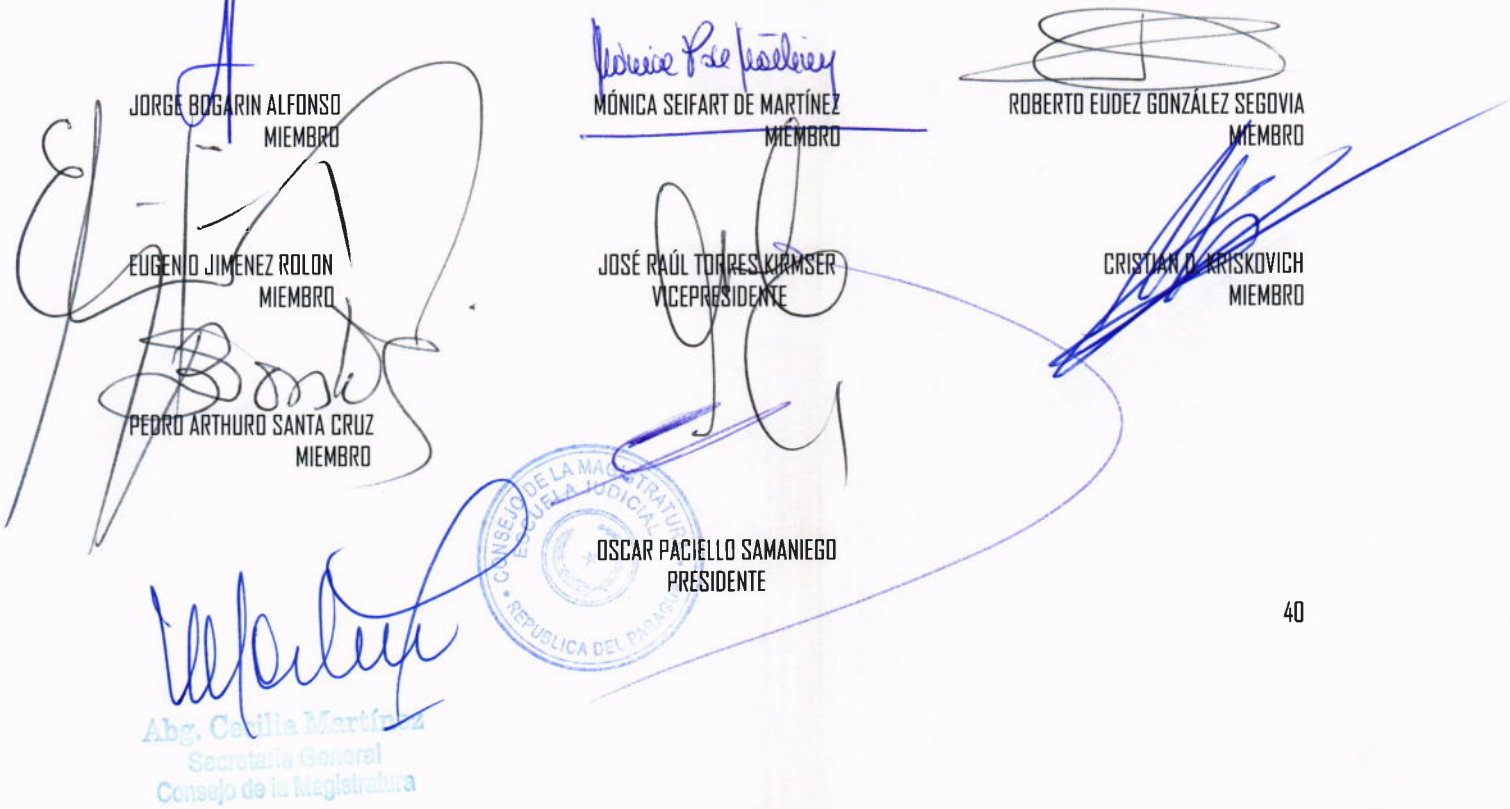 JORGE BOGARIN ALFONSO
MIEMBRO
MÓNICA SEIFART DE MARTÍNEZ
MIEMBRO
ROBERTO EUDEZ GONZÁLEZ SEGOVIA
MIEMBRO
EUGENIO JIMENEZ ROLON
MIEMBRO
JOSÉ RAÚL TORRES KIRMSER
VICEPRESIDENTE
CRISTIAN D. KRISKOVICH
MIEMBRO
PEDRO ARTHURO SANTA CRUZ
MIEMBRO
CONSEJO DE LA MAGISTRATURA
ESCUELA JUDICIAL
REPUBLICA DEL PARAGUAY
OSCAR PACIELLO SAMANIEGO
PRESIDENTE
40
Abg. Cecilia Martínez
Secretaria General
Consejo de la Magistratura